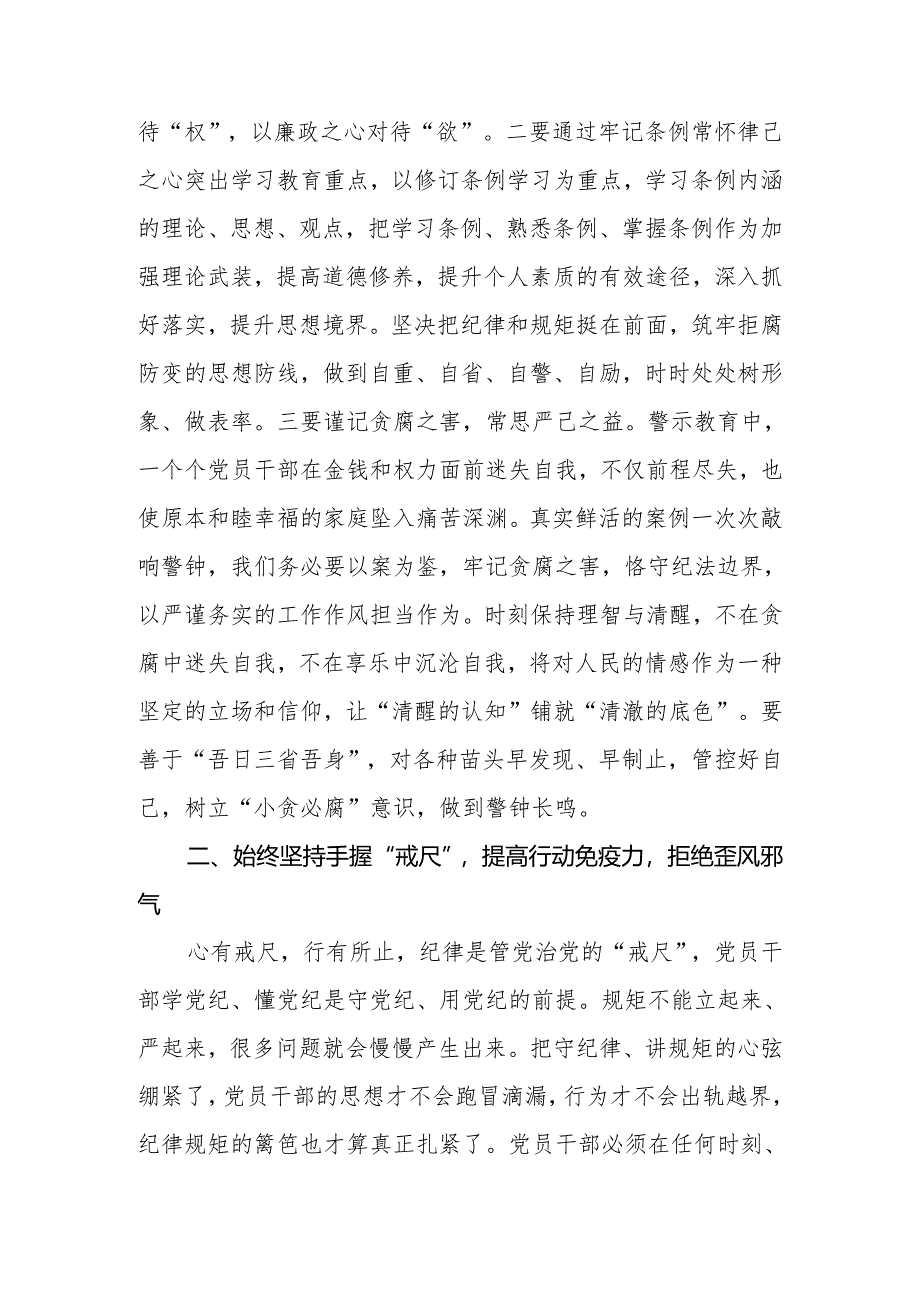 待“权”，以廉政之心对待“欲”。二要通过牢记条例常怀律己
之心突出学习教育重点，以修订条例学习为重点，学习条例内涵
的理论、思想、观点，把学习条例、熟悉条例、掌握条例作为加
强理论武装，提高道德修养，提升个人素质的有效途径，深入抓
好落实，提升思想境界。坚决把纪律和规矩挺在前面，筑牢拒腐
防变的思想防线，做到自重、自省、自警、自励，时时处处树形
象、做表率。三要谨记贪腐之害，常思严己之益。警示教育中，
一个个党员干部在金钱和权力面前迷失自我，不仅前程尽失，也
使原本和睦幸福的家庭坠入痛苦深渊。真实鲜活的案例一次次敲
响警钟，我们务必要以案为鉴，牢记贪腐之害，恪守纪法边界，
以严谨务实的工作作风担当作为。时刻保持理智与清醒，不在贪
腐中迷失自我，不在享乐中沉沦自我，将对人民的情感作为一种
坚定的立场和信仰，让“清醒的认知”铺就“清澈的底色”。要
善于“吾日三省吾身”，对各种苗头早发现、早制止，管控好自
己，树立“小贪必腐”意识，做到警钟长鸣。
二、始终坚持手握“戒尺”，提高行动免疫力，拒绝歪风邪
气
心有戒尺，行有所止，纪律是管党治党的“戒尺”，党员干
部学党纪、懂党纪是守党纪、用党纪的前提。规矩不能立起来、
严起来，很多问题就会慢慢产生出来。把守纪律、讲规矩的心弦
绷紧了，党员干部的思想才不会跑冒滴漏，行为才不会出轨越界，
纪律规矩的篱笆也才算真正扎紧了。党员干部必须在任何时刻、